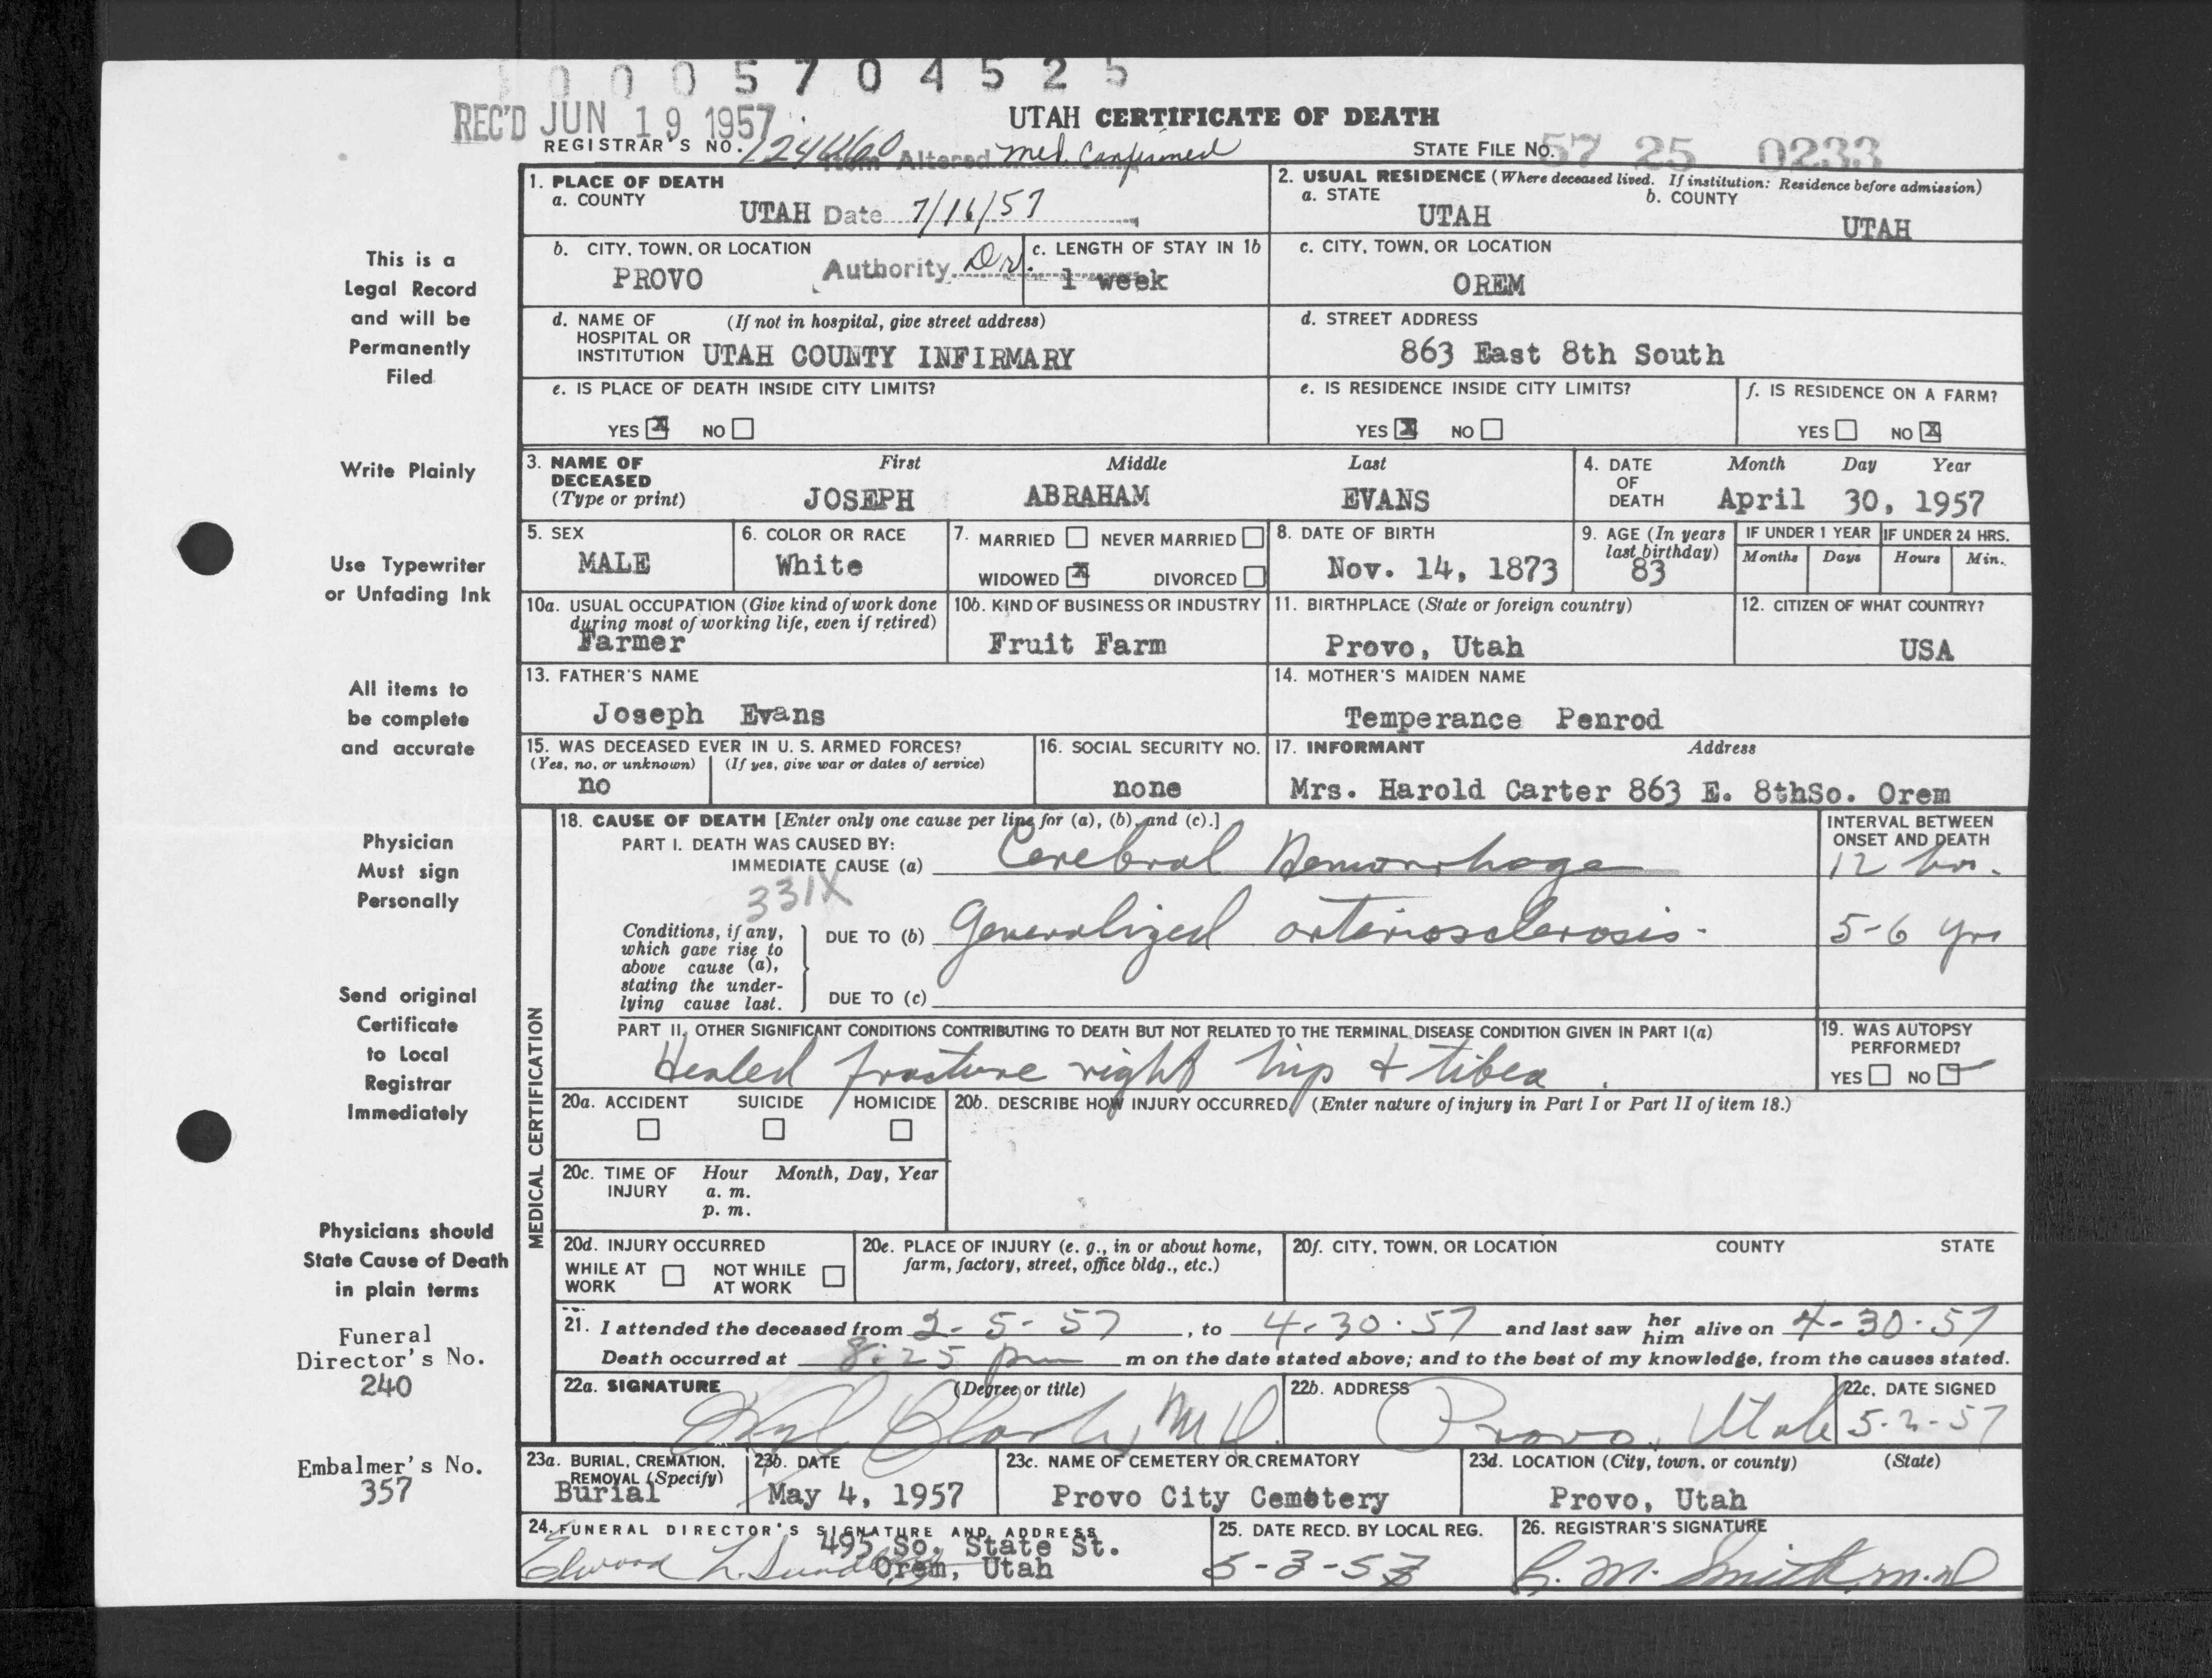 0 0 0 5 7 0 4 5 2 5
REC'D JUN 19 1957
UTAH CERTIFICATE OF DEATH
REGISTRAR'S NO. Altered Med. Confirmed
STATE FILE NO. 57 25 0233
1. PLACE OF DEATH
a. COUNTY
UTAH Date 7/16/57
2. USUAL RESIDENCE (Where deceased lived. If institution: Residence before admission)
a. STATE b. COUNTY
UTAH UTAH
b. CITY, TOWN, OR LOCATION
PROVO Authority Dr.
c. LENGTH OF STAY IN 1b
1 week
c. CITY, TOWN, OR LOCATION
OREM
d. NAME OF (If not in hospital, give street address)
HOSPITAL OR
INSTITUTION UTAH COUNTY INFIRMARY
d. STREET ADDRESS
863 East 8th South
e. IS PLACE OF DEATH INSIDE CITY LIMITS?
YES X NO
e. IS RESIDENCE INSIDE CITY LIMITS?
YES X NO
f. IS RESIDENCE ON A FARM?
YES NO X
3. NAME OF First Middle Last
DECEASED
(Type or print) JOSEPH ABRAHAM EVANS
4. DATE Month Day Year
OF
DEATH April 30, 1957
5. SEX
MALE
6. COLOR OR RACE
White
7. MARRIED NEVER MARRIED
WIDOWED X DIVORCED
8. DATE OF BIRTH
Nov. 14, 1873
9. AGE (In years
last birthday)
83
IF UNDER 1 YEAR
Months Days
IF UNDER 24 HRS.
Hours Min.
10a. USUAL OCCUPATION (Give kind of work done
during most of working life, even if retired)
Farmer
10b. KIND OF BUSINESS OR INDUSTRY
Fruit Farm
11. BIRTHPLACE (State or foreign country)
Provo, Utah
12. CITIZEN OF WHAT COUNTRY?
USA
13. FATHER'S NAME
Joseph Evans
14. MOTHER'S MAIDEN NAME
Temperance Penrod
15. WAS DECEASED EVER IN U. S. ARMED FORCES?
(Yes, no, or unknown) (If yes, give war or dates of service)
no
16. SOCIAL SECURITY NO.
none
17. INFORMANT Address
Mrs. Harold Carter 863 E. 8thSo. Orem
MEDICAL CERTIFICATION
18. CAUSE OF DEATH [Enter only one cause per line for (a), (b), and (c).]
PART I. DEATH WAS CAUSED BY:
IMMEDIATE CAUSE (a) Cerebral Hemorrhage
INTERVAL BETWEEN
ONSET AND DEATH
12 hrs.
331X
Conditions, if any,
which gave rise to
above cause (a),
stating the under-
lying cause last.
DUE TO (b) Generalized arteriosclerosis.
5-6 yrs
DUE TO (c)
PART II. OTHER SIGNIFICANT CONDITIONS CONTRIBUTING TO DEATH BUT NOT RELATED TO THE TERMINAL DISEASE CONDITION GIVEN IN PART I(a)
Healed fracture right hip & tibea.
19. WAS AUTOPSY
PERFORMED?
YES NO
20a. ACCIDENT SUICIDE HOMICIDE
20b. DESCRIBE HOW INJURY OCCURRED. (Enter nature of injury in Part I or Part II of item 18.)
20c. TIME OF Hour Month, Day, Year
INJURY a. m.
p. m.
20d. INJURY OCCURRED
WHILE AT NOT WHILE
WORK AT WORK
20e. PLACE OF INJURY (e. g., in or about home,
farm, factory, street, office bldg., etc.)
20f. CITY, TOWN, OR LOCATION COUNTY STATE
21. I attended the deceased from 2-5-57, to 4-30-57 and last saw her him alive on 4-30-57
Death occurred at 8:25 pm m on the date stated above; and to the best of my knowledge, from the causes stated.
22a. SIGNATURE (Degree or title)
Clark, MD.
22b. ADDRESS
Provo, Utah
22c. DATE SIGNED
5-2-57
23a. BURIAL, CREMATION,
REMOVAL (Specify)
Burial
23b. DATE
May 4, 1957
23c. NAME OF CEMETERY OR CREMATORY
Provo City Cemetery
23d. LOCATION (City, town, or county) (State)
Provo, Utah
24. FUNERAL DIRECTOR'S SIGNATURE AND ADDRESS
495 So. State St.
Elwood L. Orem, Utah
25. DATE RECD. BY LOCAL REG.
5-3-57
26. REGISTRAR'S SIGNATURE
Smith, m.d
This is a
Legal Record
and will be
Permanently
Filed
Write Plainly
Use Typewriter
or Unfading Ink
All items to
be complete
and accurate
Physician
Must sign
Personally
Send original
Certificate
to Local
Registrar
Immediately
Physicians should
State Cause of Death
in plain terms
Funeral
Director's No.
240
Embalmer's No.
357